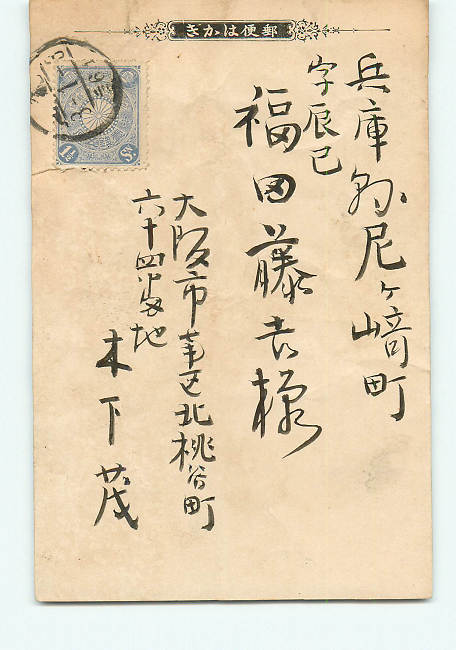 きかは便郵
兵庫縣尼ヶ崎町
字辰巳
福田藤吉様
大阪市南区北桃谷町
六十四番地
木下茂
1½ Sn.